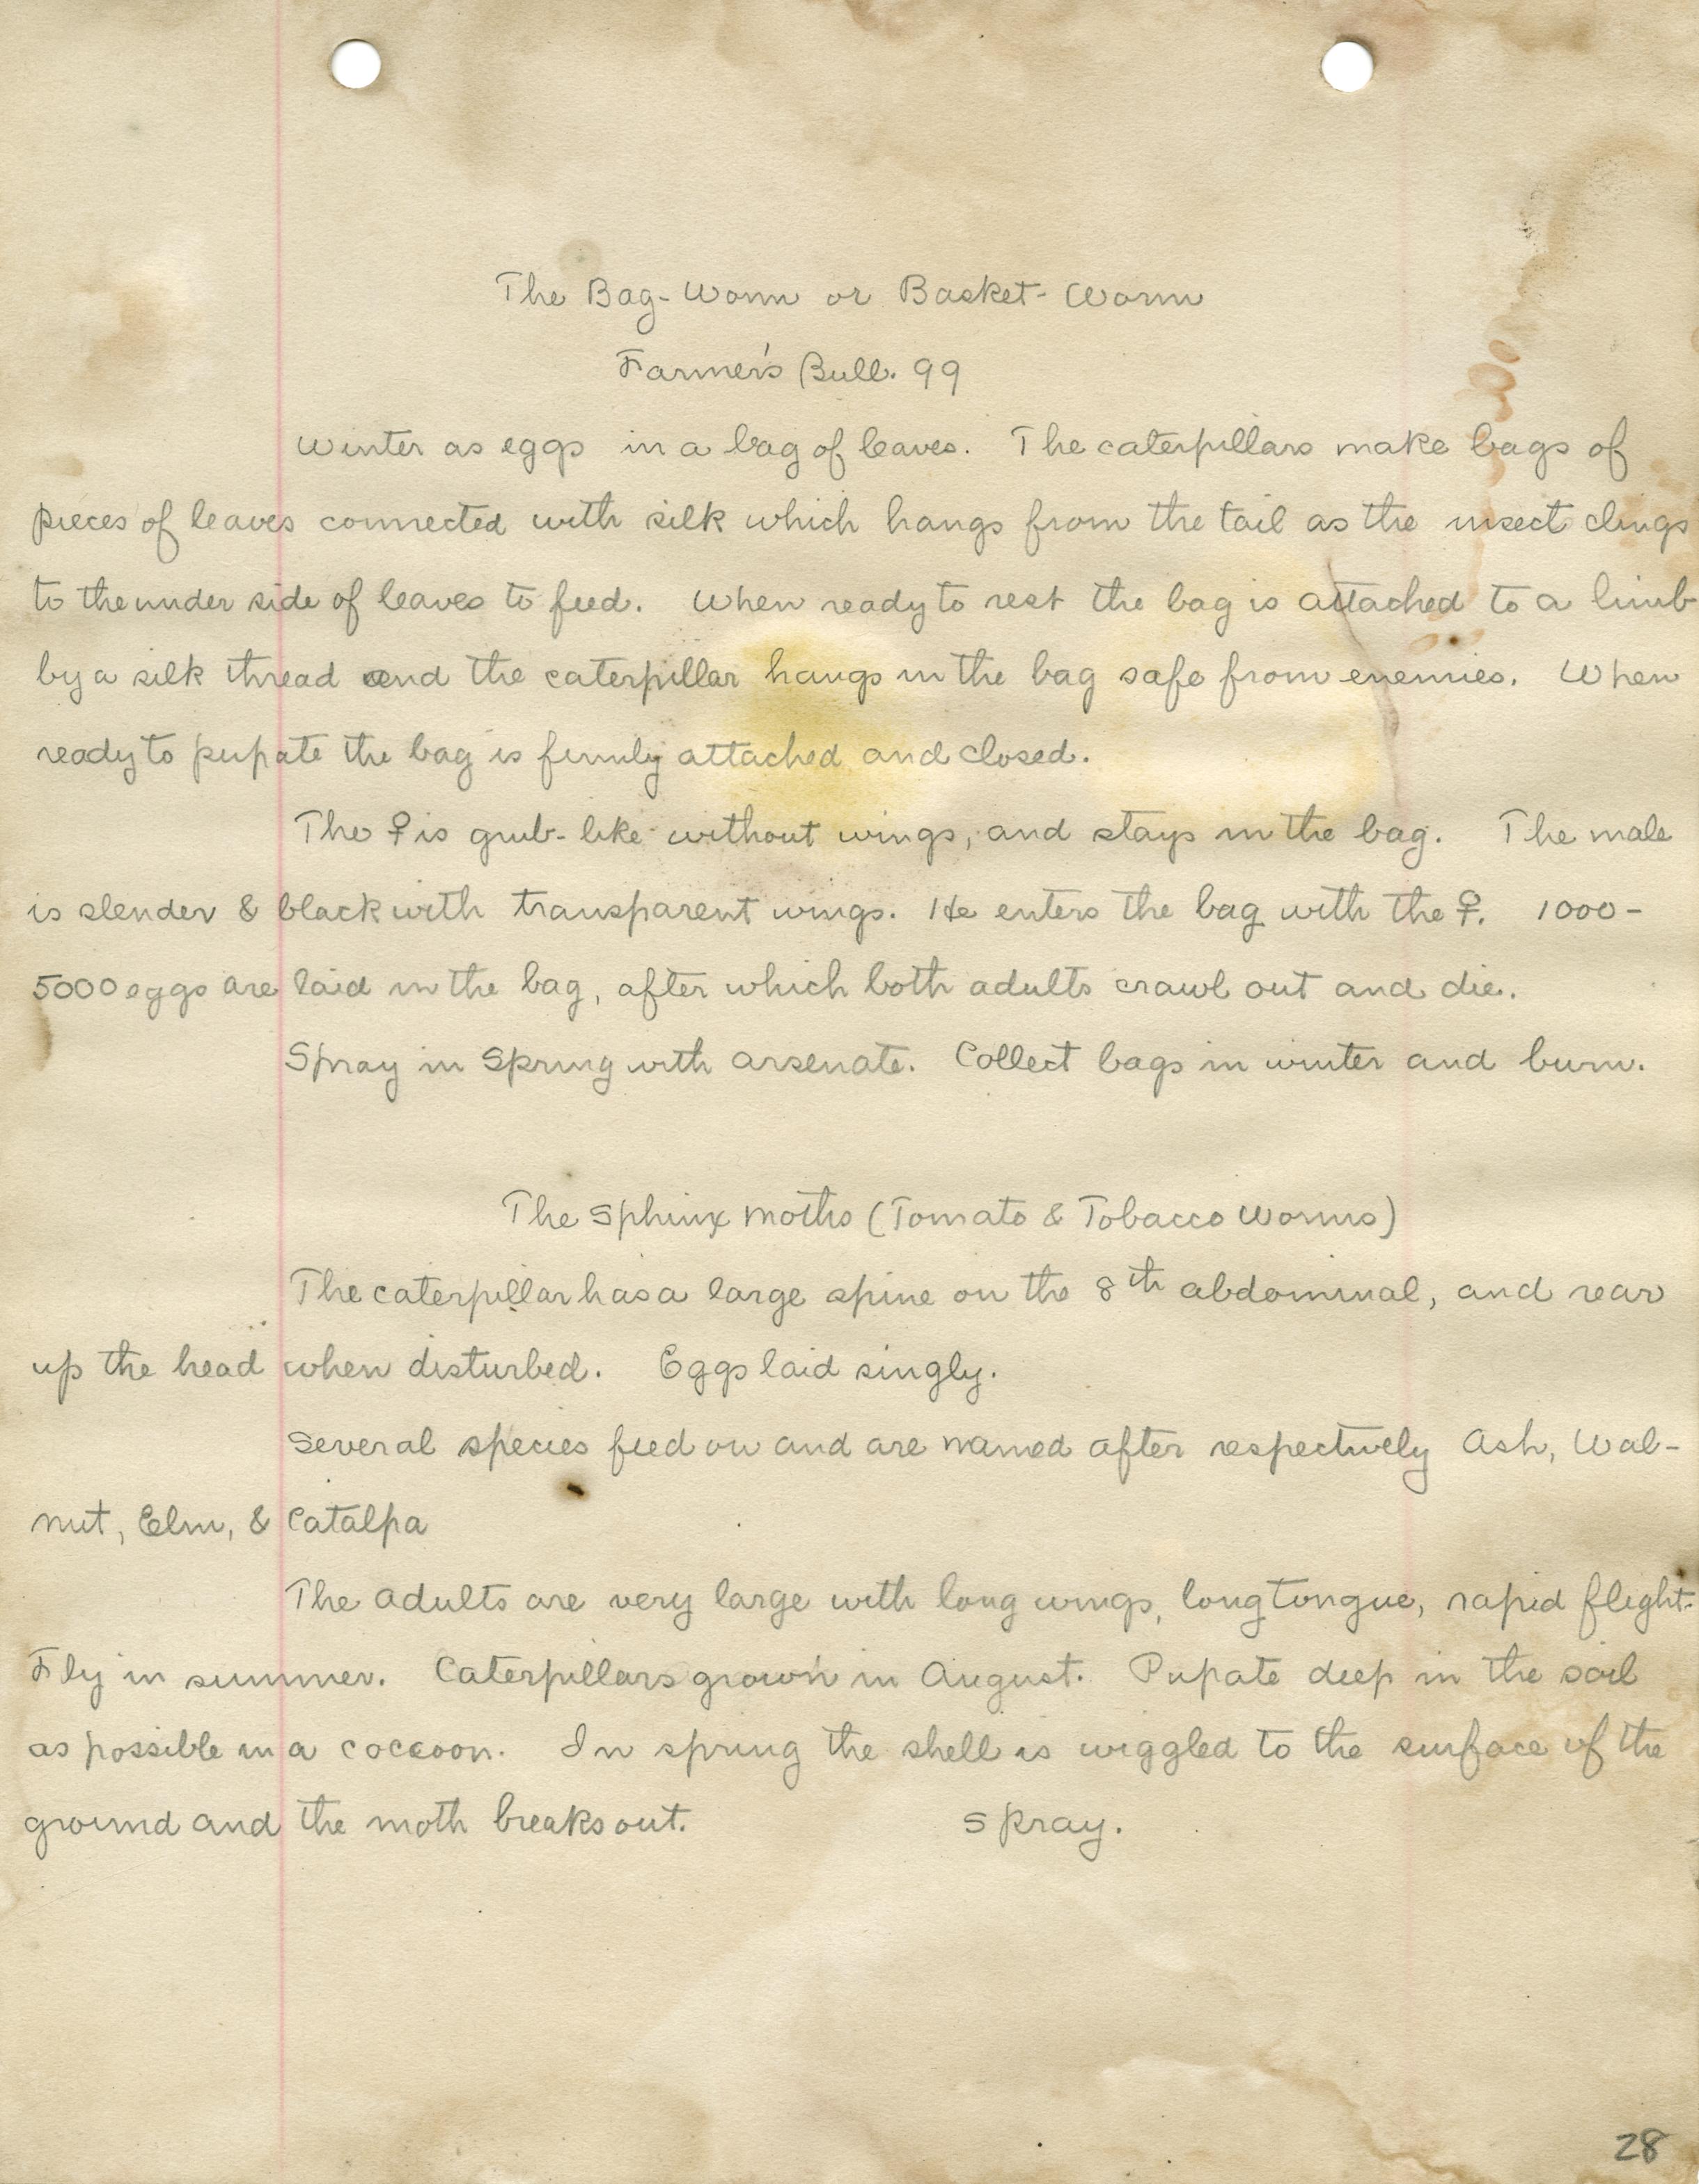 The Bag-Worm or Basket-Worm
Farmer's Bull. 99
Winter as eggs in a bag of leaves. The caterpillars make bags of
pieces of leaves connected with silk which hangs from the tail as the insect clings
to the under side of leaves to feed. When ready to rest the bag is attached to a limb
by a silk thread and the caterpillar hangs in the bag safe from enemies. When
ready to pupate the bag is firmly attached and closed.
The ♀ is grub-like without wings, and stays in the bag. The male
is slender & black with transparent wings. He enters the bag with the ♀. 1000-
5000 eggs are laid in the bag, after which both adults crawl out and die.
Spray in Spring with arsenate. Collect bags in winter and burn.
The Sphinx Moths (Tomato & Tobacco Worms)
The caterpillar has a large spine on the 8th abdominal, and rear
up the head when disturbed. Eggs laid singly.
Several species feed on and are named after respectively Ash, Wal-
nut, Elm, & Catalpa
The adults are very large with long wings, long tongue, rapid flight.
Fly in summer. Caterpillars grown in August. Pupate deep in the soil
as possible in a cocoon. In spring the shell is wiggled to the surface of the
ground and the moth breaks out. Spray.
28